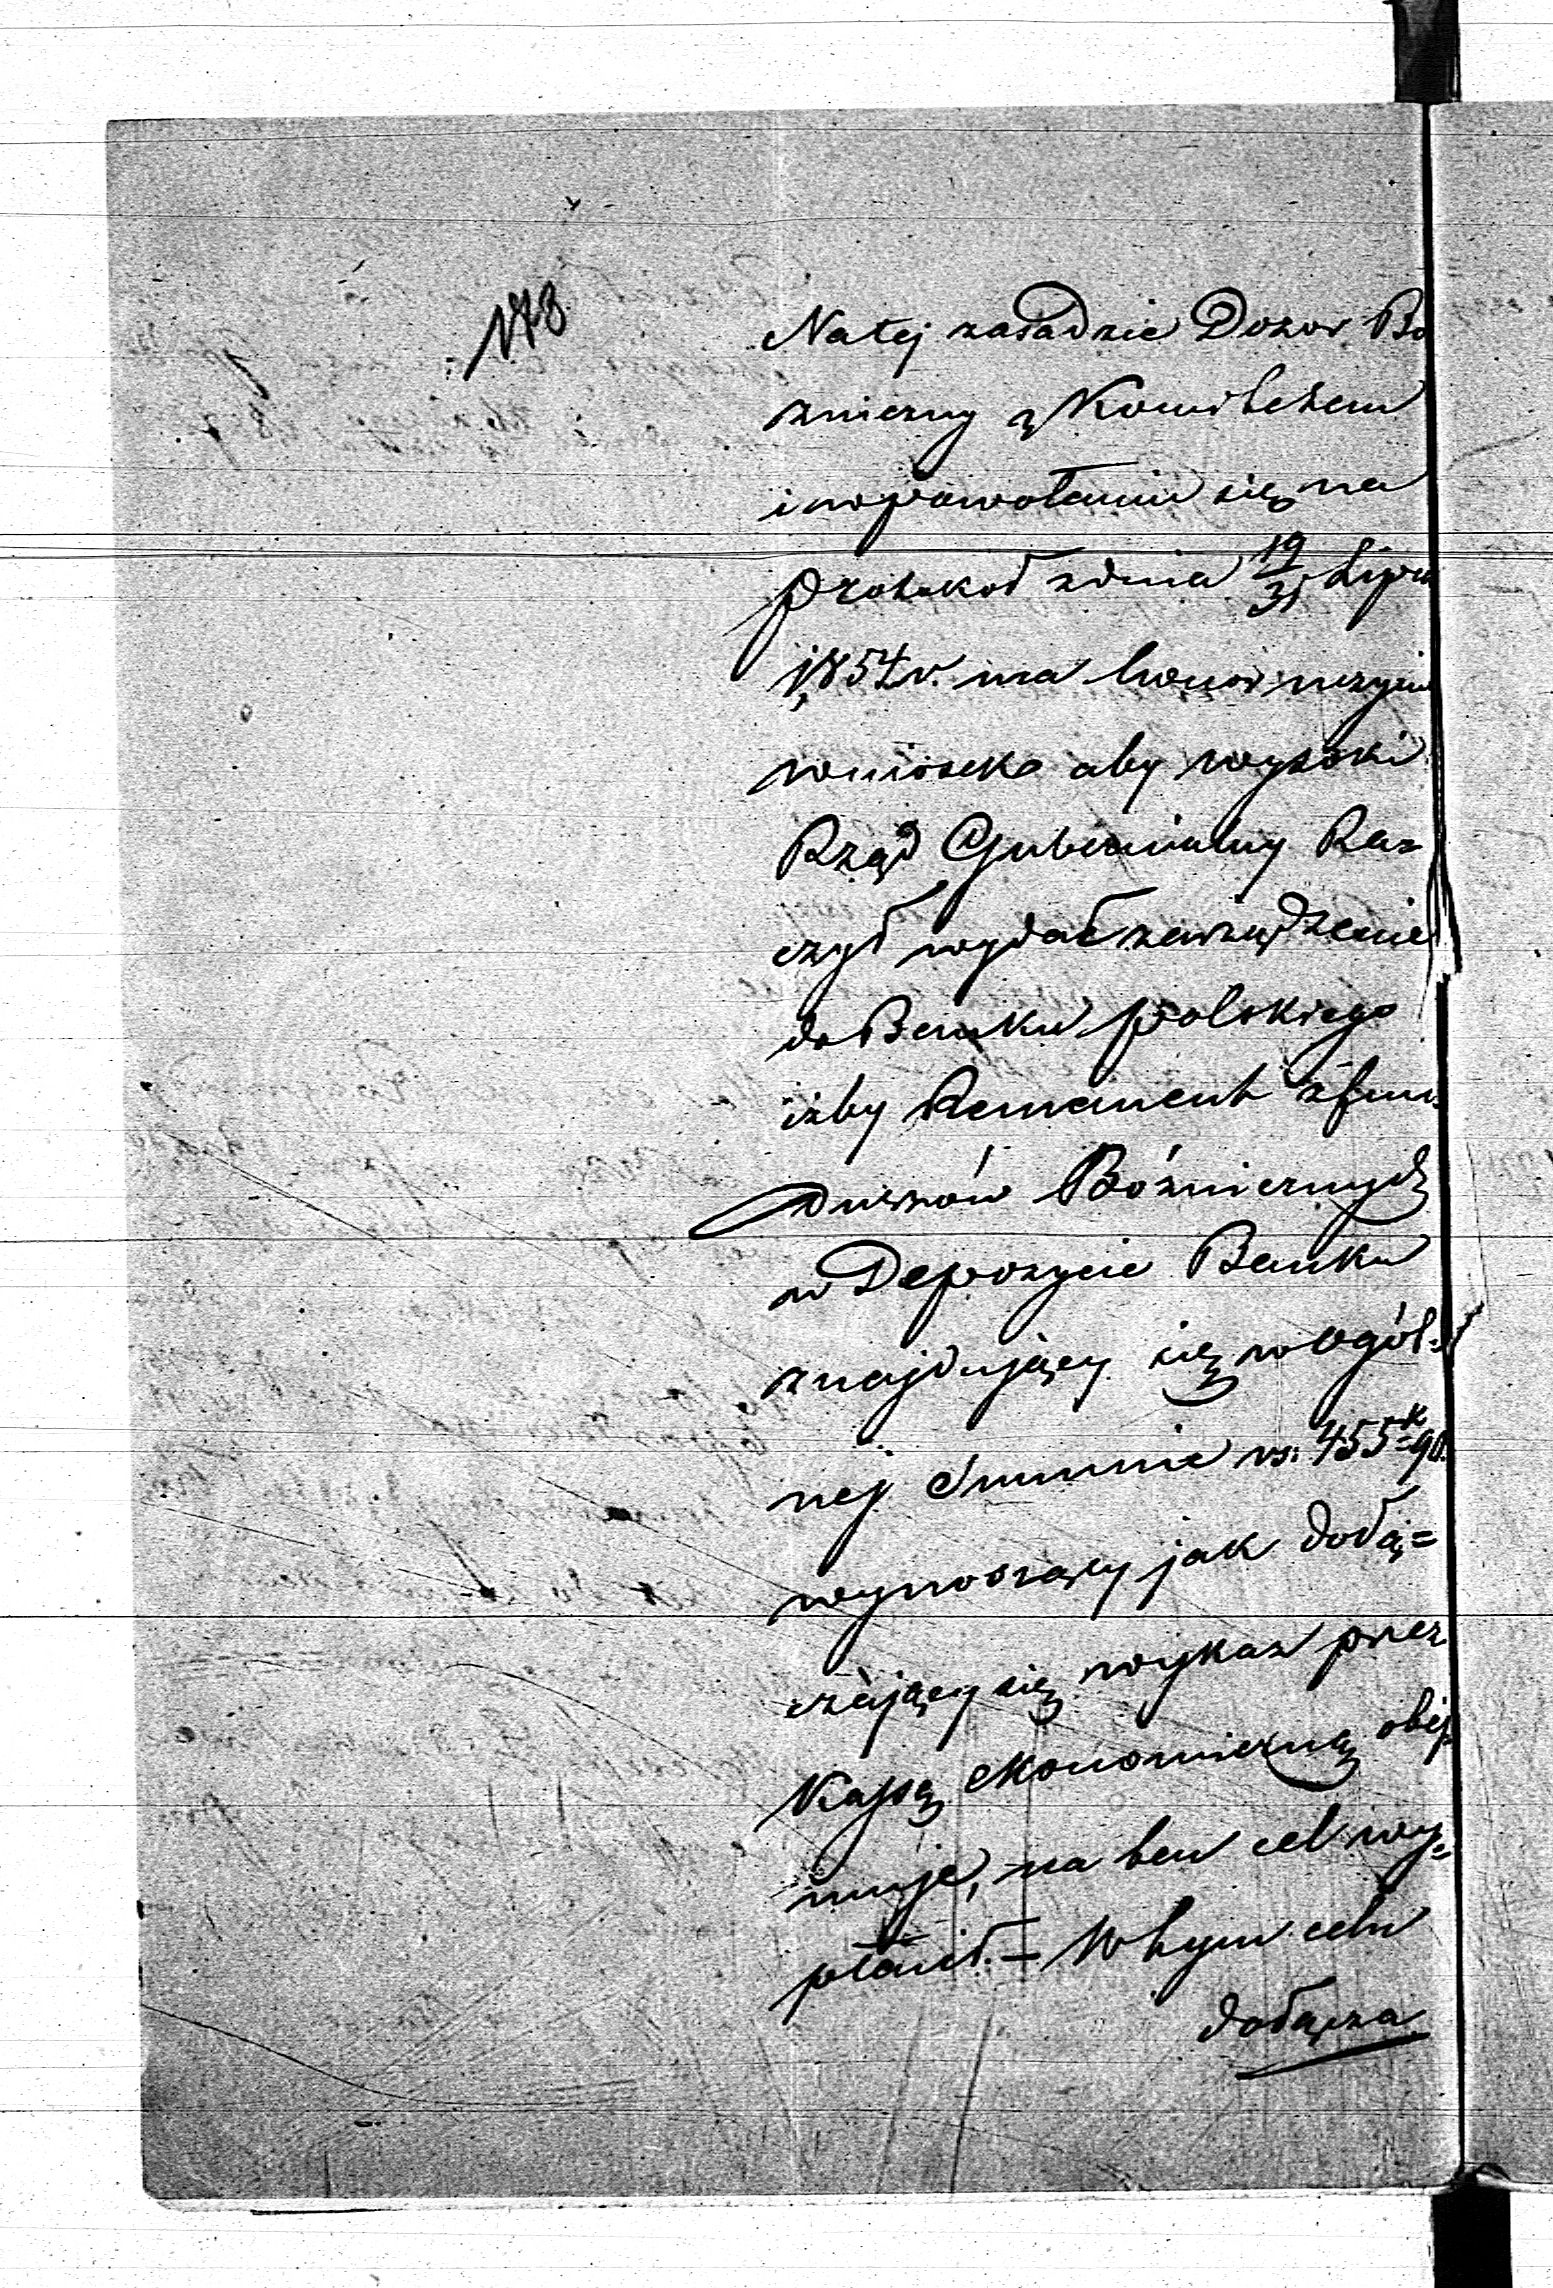 178
Na tej zasadzie Dozor Bo
zniczny z Komitetem
i w powołaniu się na
protokoł z dnia 19/31 Lipca
1854 r. ma honor uczynić
wniosek aby wysoki
Rząd Gubernialny Ra-
czył wydać zarządzenie
do Banku polskiego
iżby Remanent z fun-
duszów Bóźnicznych
w Depozycie Banku
znajdujący się w ogól-
nej Summie rs. 455 k 90.
wynoszący jak dołą=
czający się wykaz przez
Kassę ekonomiczną obej
muje, na ten cel wy=
płacił. – W tym celu
dołącza